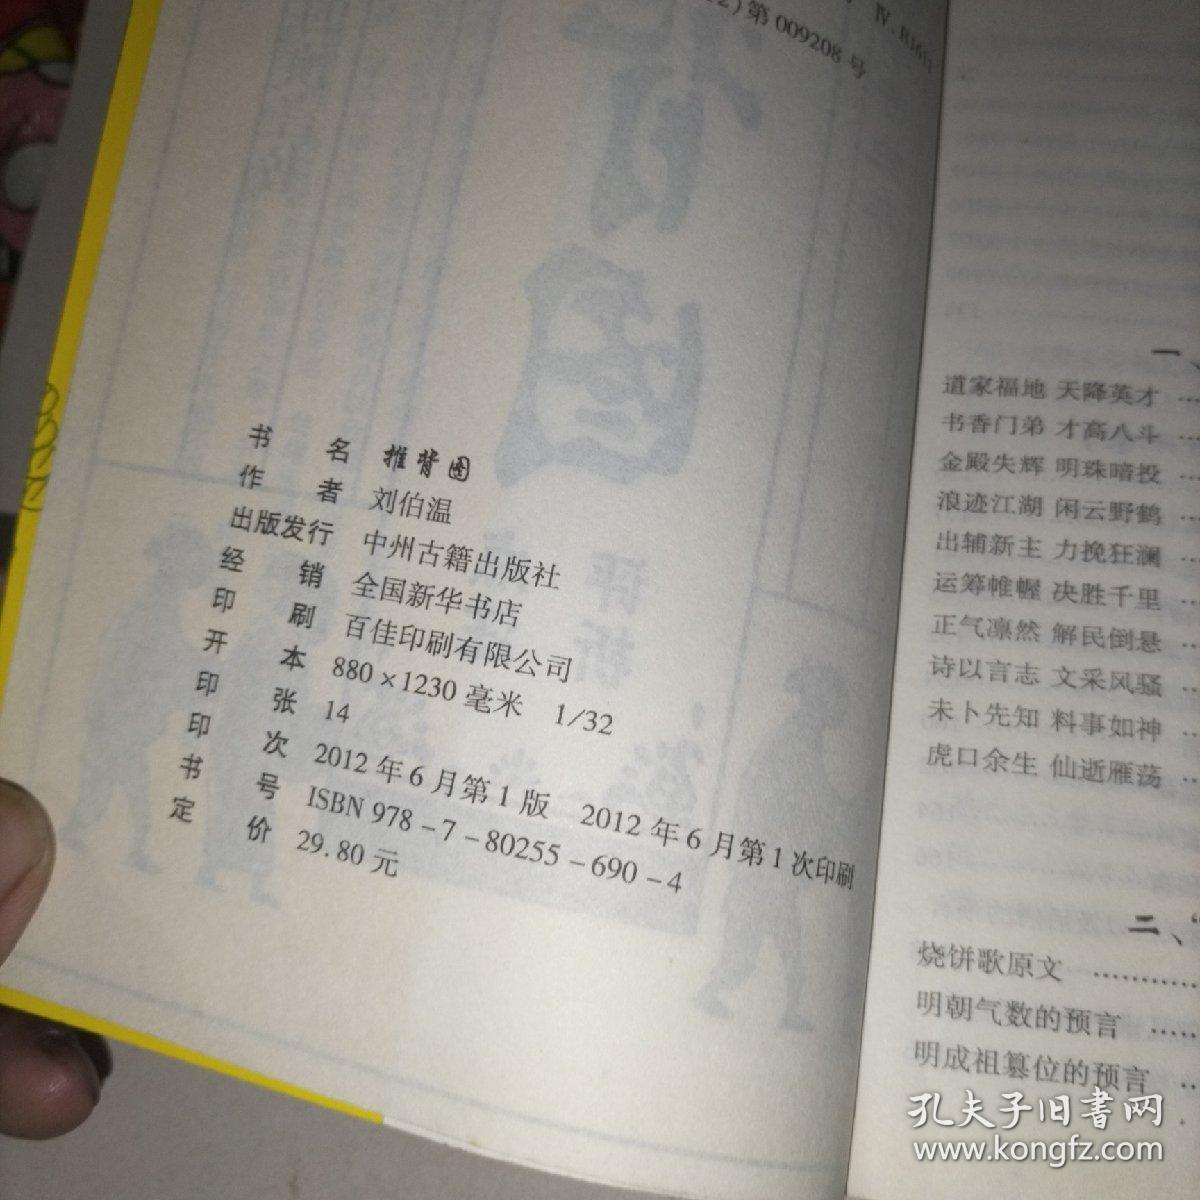 Ⅳ.B1611
第 009208 号
书名 推背图
作者 刘伯温
出版发行 中州古籍出版社
经销 全国新华书店
印刷 百佳印刷有限公司
开本 880×1230 毫米 1/32
印张 14
印次 2012 年 6 月第 1 版 2012 年 6 月第 1 次印刷
书号 ISBN 978-7-80255-690-4
定价 29.80 元
一、
道家福地 天降英才 ……
书香门弟 才高八斗 ……
金殿失辉 明珠暗投 ……
浪迹江湖 闲云野鹤 ……
出辅新主 力挽狂澜 ……
运筹帷幄 决胜千里 ……
正气凛然 解民倒悬 ……
诗以言志 文采风骚 ……
未卜先知 料事如神 ……
虎口余生 仙逝雁荡 ……
二、“
烧饼歌原文 …………
明朝气数的预言 ……
明成祖篡位的预言 ……
孔夫子旧书网
www.kongfz.com